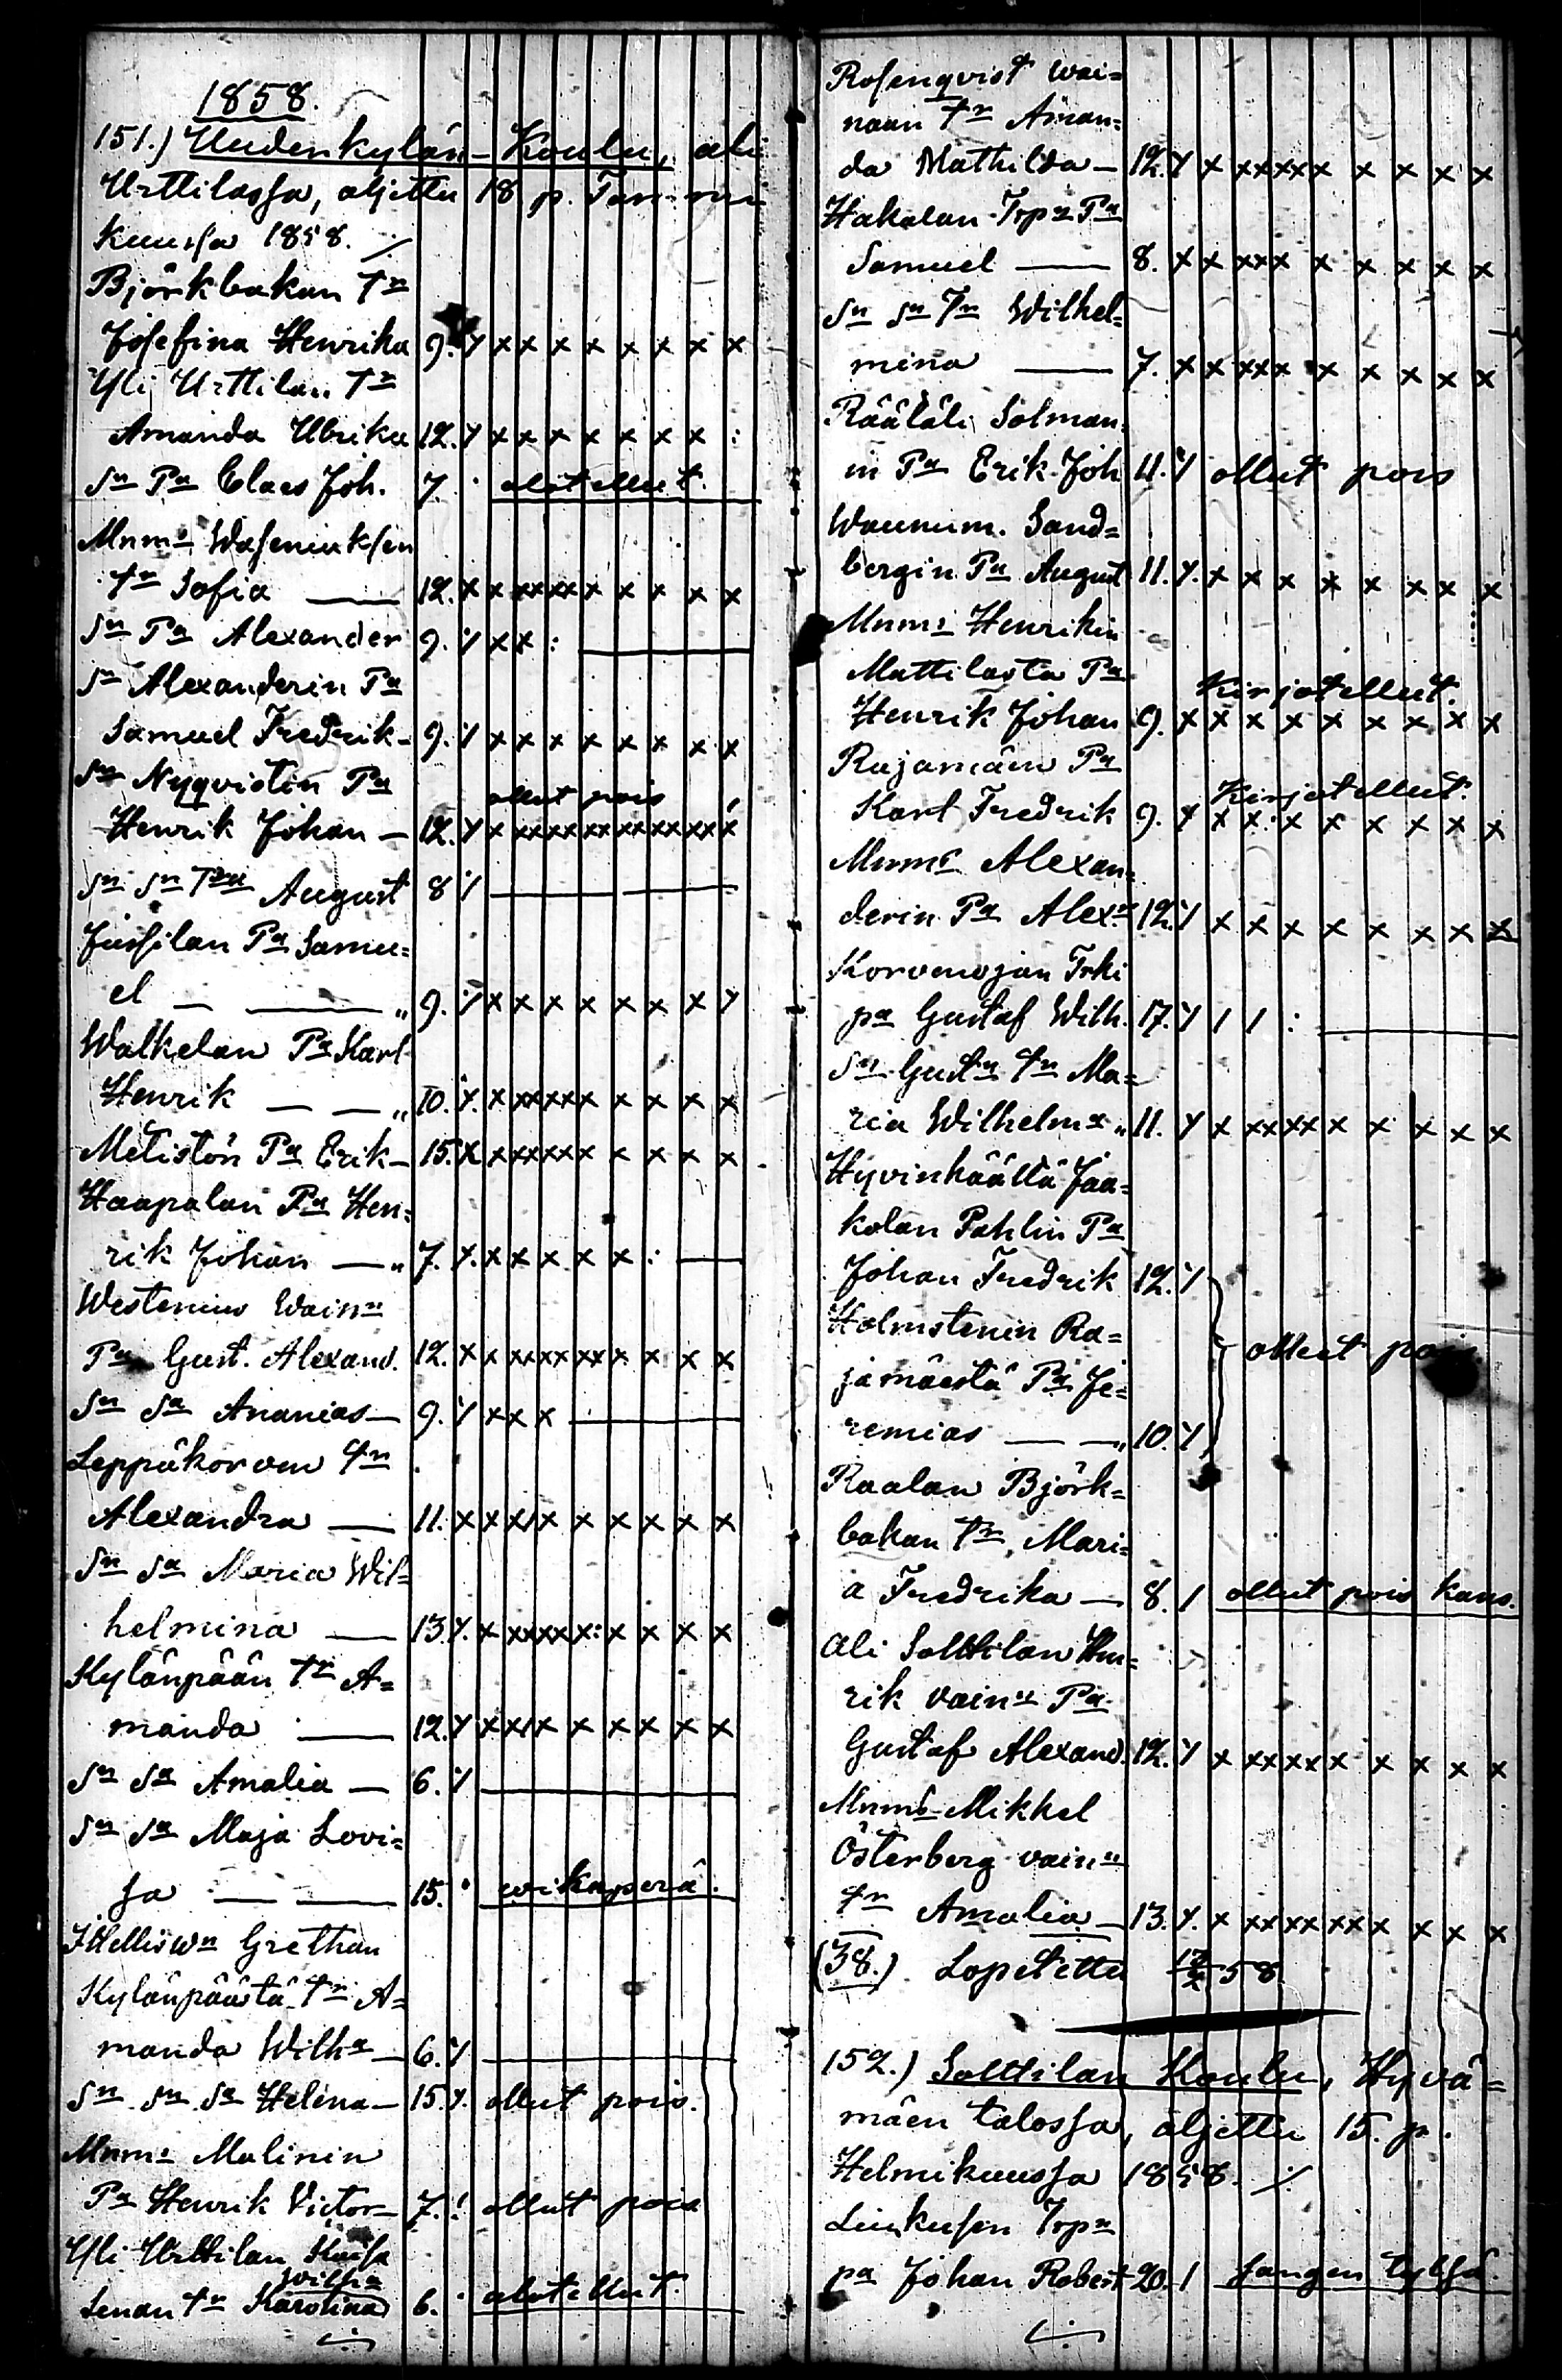 1858.
151.) Uudenkylän-Koulu, ali
Urttilassa, aljettu 18 p. Tammi
kuussa 1858. ·/.
Björkbakan Tr
Josefina Henrika 9. y x x x x x x x x
Yli Urttilan Tr
Amanda Ulrika 12. y x x x x x x x :
Sn Pa Claes Joh. 7. · alotellut.
Mnms Waseniuksen
Tr Sofia — 12. x x xx xx x x x x x
Sn Pa Alexander 9. y x x : —
Sn Alexanderin Pa
Samuel Fredrik - 9. y x x x x x x x x
Sn Nyqvistin Pa
ollut pois
Henrik Johan — 12. y x xx xx xx xx xx x
Sn Sn August 8 y —
Jussilan Pa Samu=
el — — „ 9. y x x x x x x x y
Walkelan Pa Karl
Henrik — — „ 10. y. x xx xx x x x x x
Metistön Pa Erik — 15. x x xx xx x x x x x
Haapalan Pa Hen=
rik Johan — „ 7. y. x x x x x : —
Westenius Wainn
Pa Gust. Alexand. 12. x x xx xx xx x x x x
Sn Sa Ananias — 9. y x x x —
Leppäkorven Tr
Alexandra — 11. x x x/x x x x x x
Sn Sa Maria Wil=
helmina — 13. y. x xx xx x: x x x x
Kylänpään Tr A=
manda — 12. y x x/x x x x x x
Sn Sa Amalia — 6. y —
Sn Sa Maja Lovi=
sa — — 15. · wikaperä.
Grethan
Kylänpäästä Tr A=
manda Wilha — 6. y —
Sn Sn Sa Helena — 15. y. ollut pois.
Mnms Malinin
Pa Henrik Victor — 7. ! ollut pois
Yli Urttilan Kaisa
Wilha
Lenan Tr Karolina 6. · alotellut.
Rosenqvist wai=
naan Tr Aman=
da Mathilda — 12. y x xx xx x x x x x
Hakalan Trpn Pa
Samuel — 8. x x xx x x x x x x
Sn Sn Tr Wilhel=
mina — 7. x x xx x x x x x x
Räätäli Solman=
in Pa Erik Joh 11. y ollut pois
Waunum. Sand=
bergin Pa August 11. y. x x x x x x x x
Mnms Henrikin
Mattilasta Pa
Kirjotellut.
Henrik Johan 9. x x x x x x x x x
Rajamäen Pa
Kirjotellut.
Karl Fredrik 9. y x x: x x x x x x
Mnms Alexan=
derin Pa Alexr 12. y x x x x x x x x
Korvenojan Trki
pa Gustaf Wilh. 17. y / / : —
Sn Gustn Tr Ma=
ria Wilhelma „ 11. y x xx xx x x x x x
Hyvinkäältä Jaa=
kolan Pahlin Pa
Johan Fredrik 12. y
Holmstenin Ra=
ollut pois
jamäestä Pa Je=
remias — — „ 10. y
Raalan Björk=
bakan Tr, Mari=
a Fredrika — 8. / ollut pois kans.
Ali Solttilan Hen=
rik vainn Pa
Gustaf Alexand. 12. y x xx xx x x x x x
Mnms Mikkel
Österberg vainn
Tr Amalia — 13. y. x xx xx xx x x x x
(38.) Lopetettu 58
152.) Solttilan Koulu, Hyvä=
mäen talossa, aljettu 15. p.
Helmikuussa 1858. ·/.
Linkusen Trpn
pa Johan Robert 20. / sangen tylsä.